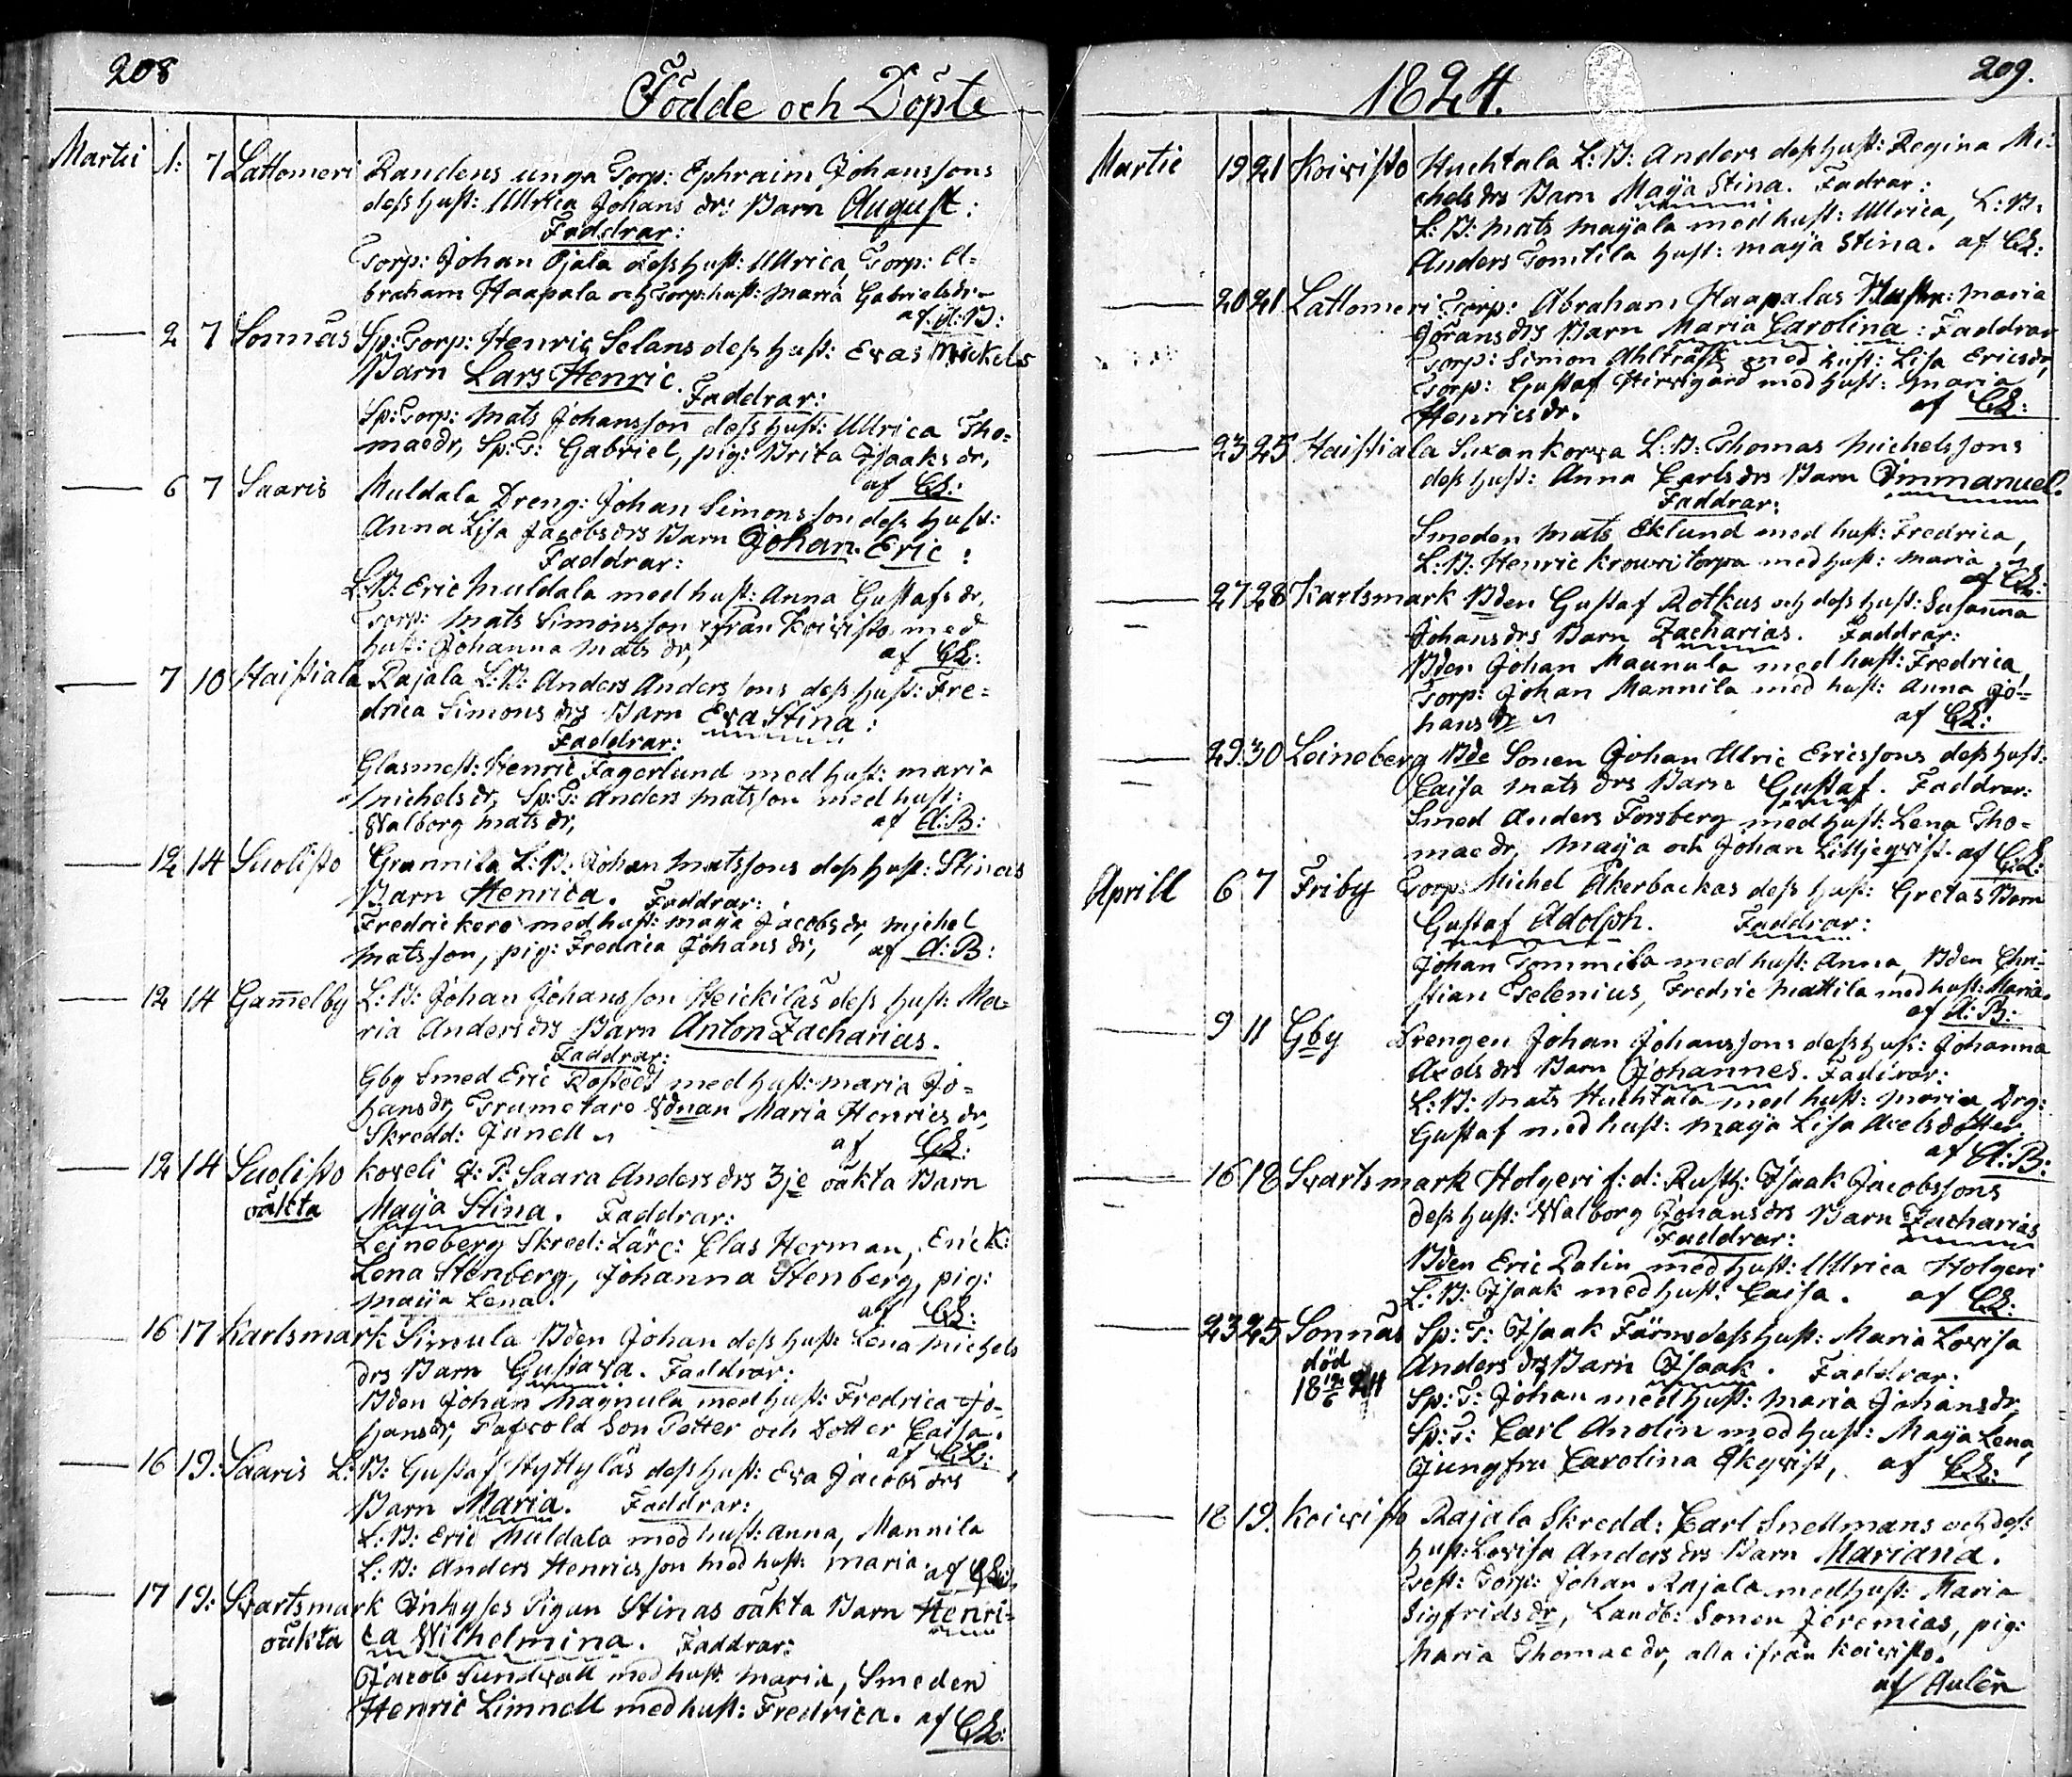 208
Födde och Döpte
Martii 1: 7 Lattomeri Randens unga Torp: Ephraim Johanssons
dess hust: Ullrica Johans drs Barn August:
Faddrar:
Torp: Johan Ojala dess hust: Ullrica, Torp: A=
braham Haapala och Torp: hust: Maria Gabrielsdr
af A: B:
2 7 Sonnäs Sp: Torp: Henric Selans dess hust: Evas Mickels
Barn Lars Henric.
Faddrar:
Sp: Torp: Mats Johansson dess hust: Ullrica Tho=
maedr, Sp: T: Gabriel, pig: Brita Isaaks dr,
af CL:
6 7 Saaris Muldala Dreng: Johan Simonsson dess hust:
Anna Lisa Jacobsdrs Barn Johan Eric:
Faddrar:
L: B: Eric Muldala med hust: Anna Gustafs dr,
Torp: Mats Simonsson ifrån Koivisto med
hust: Johanna Mats dr, af CL:
7 10 Haistiala Rajala L: B: Anders Anderssons dess hust: Fre=
drica Simons drs Barn Eva Stina:
Faddrar:
Glasmest: Henric Fagerlund med hust: Maria
Michelsdr, Sp: T: Anders Matsson med hust:
Walborg Mats dr, af A: B:
12 14 Suolisto Grannila L: B: Johan Matssons dess hust: Stinas
Barn Henrica. Faddrar:
Fredrickero med hust: Maja Jacobsdr, Michel
Matsson, pig: Fredrica Johans dr, af A: B:
12 14 Gam̄elby L: B: Johan Johansson Heickiläs dess hust: Ma=
ria Anders drs Barn Anton Zacharias.
Faddrar:
Gby Smed Eric Rostedt med hust: Maria Jo=
hansdr, Trumetare Enkan Maria Henrics dr,
Skredd: Junell af CL:
12 14 Suolisto Koveli Q: P: Saara Anders drs 3je oäkta Barn
oäkta Maja Stina. Faddrar:
Leineberg Skred: Lärl: Clas Herman, Eric K:
Lena Stenberg, Johanna Stenberg, pig:
Maija Lena. af CL:
16 17 Karlsmark Simula Bden Johan dess hust: Lena Michels
drs Barn Gustava. Faddrar:
Bden Johan Magnula med hust: Fredrica Jo=
hansdr, Son Petter och Dotter Caisa.
af CL:
16 19: Saaris L: B: Gustaf Hyttyläs dess hust: Eva Jacobs drs
Barn Maria. Faddrar:
L: B: Eric Muldala med hust: Anna, Mannila
L: B: Anders Henricsson med hust: Maria. af CL:
17 19: Svartsmark Inhyses Pigan Stinas oäkta Barn Henri=
oäkta ca Wilhelmina. Faddrar:
Jacob Sundvall med hust: Maria, Smeden
Henric Limnell med hust: Fredrica. af CL:
1824.
209.
Martii 19 21 Koivisto Huhtala L: B: Anders dess hust: Regina Mi:
chels drs Barn Maja Stina. Fadrar:
L: B: Mats Majala med hust: Ullrica, L: B:
Anders Tomtila hust: Maja Stina. af CL:
20 21 Lattomeri Torp: Abraham Haapalas Hustru: Maria
Göransdrs Barn Maria Carolina: Faddrar
Torp: Simon Ahlträsk med hust: Lisa Ericsdr,
Torp: Gustaf med hust: Maria
Henricsdr. af CL:
23 25 Haistiala Suxankorva L: B: Thomas Michelssons
dess hust: Anna Carlsdrs Barn Immanuel.
Faddrar:
Smeden Mats Eklund med hust: Fredrica,
L: B: Henric Krouvitorpa med hust: Maria
af CL:
27 28 Karlsmark Bden Gustaf Rotkus och dess hust: Susanna
Johansdrs Barn Zacharias. Faddrar:
Bden Johan Maunula med hust: Fredrica,
Torp: Johan Mannila med hust: Anna Jo=
hans dr af CL:
29 30 Leineberg Bde Sonen Johan Ulric Ericssons dess hust:
Caisa Mats drs Barn Gustaf. Faddrar:
Smed Anders Forsberg med hust: Lena Tho=
mae dr, Maja och Johan Lilljeqvist. af CL:
Aprill 6 7 Friby Torp: Michel Åkerbackas dess hust: Gretas Barn
Gustaf Adolph. Faddrar:
Johan Tommila med hust: Anna, Bden Chri=
stian Telenius, Fredric Mattila med hust: Maria.
af A: B:
9 11 Gby Drengen Johan Johanssons dess hust: Johanna
Axels drs Barn Johannes. Faddrar:
L: B: Mats Huhtala med hust: Maria, Drg:
Gustaf med hust: Maja Lisa Axelsdotter,
af A: B:
16 18 Svartsmark Holgeri f: d: Rusth: Isaak Jacobssons
dess hust: Walborg Johansdrs Barn Zacharias
Faddrar:
Bden Eric Palin med hust: Ullrica Holgeri
L: B: Isaak med hust: Caisa. af CL:
23 25 Sonnäs Sp: T: Isaak Färms dess hust: Maria Lovisa
död Anders drs Barn Isaak. Faddrar:
18 12/6 24 Sp: T: Johan med hust: Maria Johansdr,
Sp: T: Carl Anolin med hust: Maja Lena,
Jungfru Carolina Ekqvist, af CL:
18 19: Koivisto Rajala Skredd: Carl Snellmans och dess
hust: Lovisa Anders drs Barn Mariana.
Test: Torp: Johan Rajala med hust: Maria
Sigfridsdr, Landb: Sonen Jeremias, pig:
Maria Thomae dr, alla ifrån Koivisto.
af Aulén